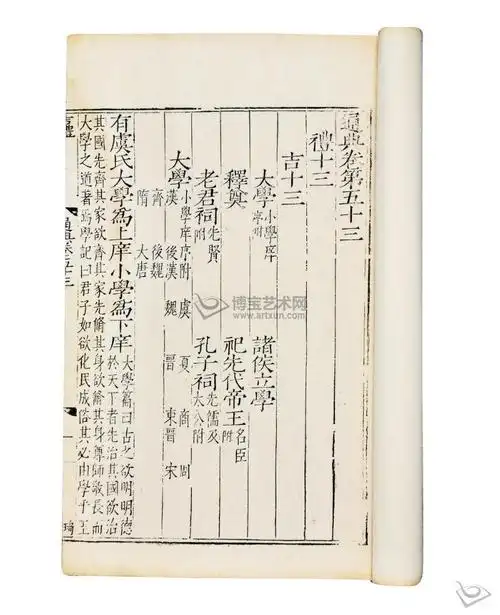 通典卷第五十三
禮十三
吉十三
大學小學庠序附 諸侯立學
釋奠 祀先代帝王名臣附
老君祠先賢附 孔子祠先儒及太公附
大學小學庠序附 虞 夏 商 周
漢 後漢 魏 晉 東晉 宋
齊 後魏
隋 大唐
有虞氏大學爲上庠小學爲下庠大學篇曰古之欲明明德
於天下者先治其國欲治
其國先齊其家欲齊其家先脩其身欲脩其身尊師敬長而
大學之道著焉學記曰君子如欲化民成俗其必由學乎王
博宝艺术网
www.artxun.com